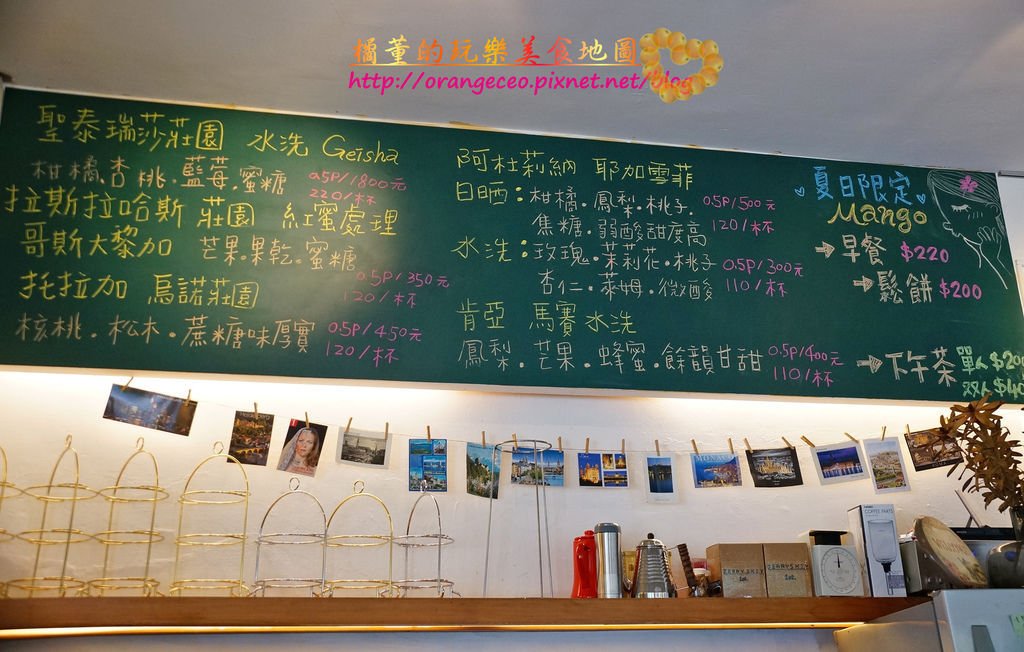 橘董的玩樂美食地圖
http://orangeceo.pixnet.net/blog
聖泰瑞莎莊園 水洗 Geisha
柑橘.杏桃.藍莓.蜜糖 0.5P/1800元
220/杯
拉斯拉哈斯 莊園 紅蜜處理
哥斯大黎加 芒果.果乾.蜜糖 0.5P/350元
120/杯
托拉加 烏諾莊園
核桃.松木.蔗糖味厚實 0.5P/450元
120/杯
阿杜莉納 耶加雪菲
日晒:柑橘.鳳梨.桃子. 0.5P/500元
焦糖.弱酸甜度高 120/杯
水洗:玫瑰.茉莉花.桃子 0.5P/300元
杏仁.萊姆.微酸 110/杯
肯亞 馬賽 水洗
鳳梨.芒果.蜂蜜.餘韻甘甜 0.5P/400元
110/杯
夏日限定
Mango
→早餐 $220
→鬆餅 $200
→下午茶 單人 $200
双人 $40